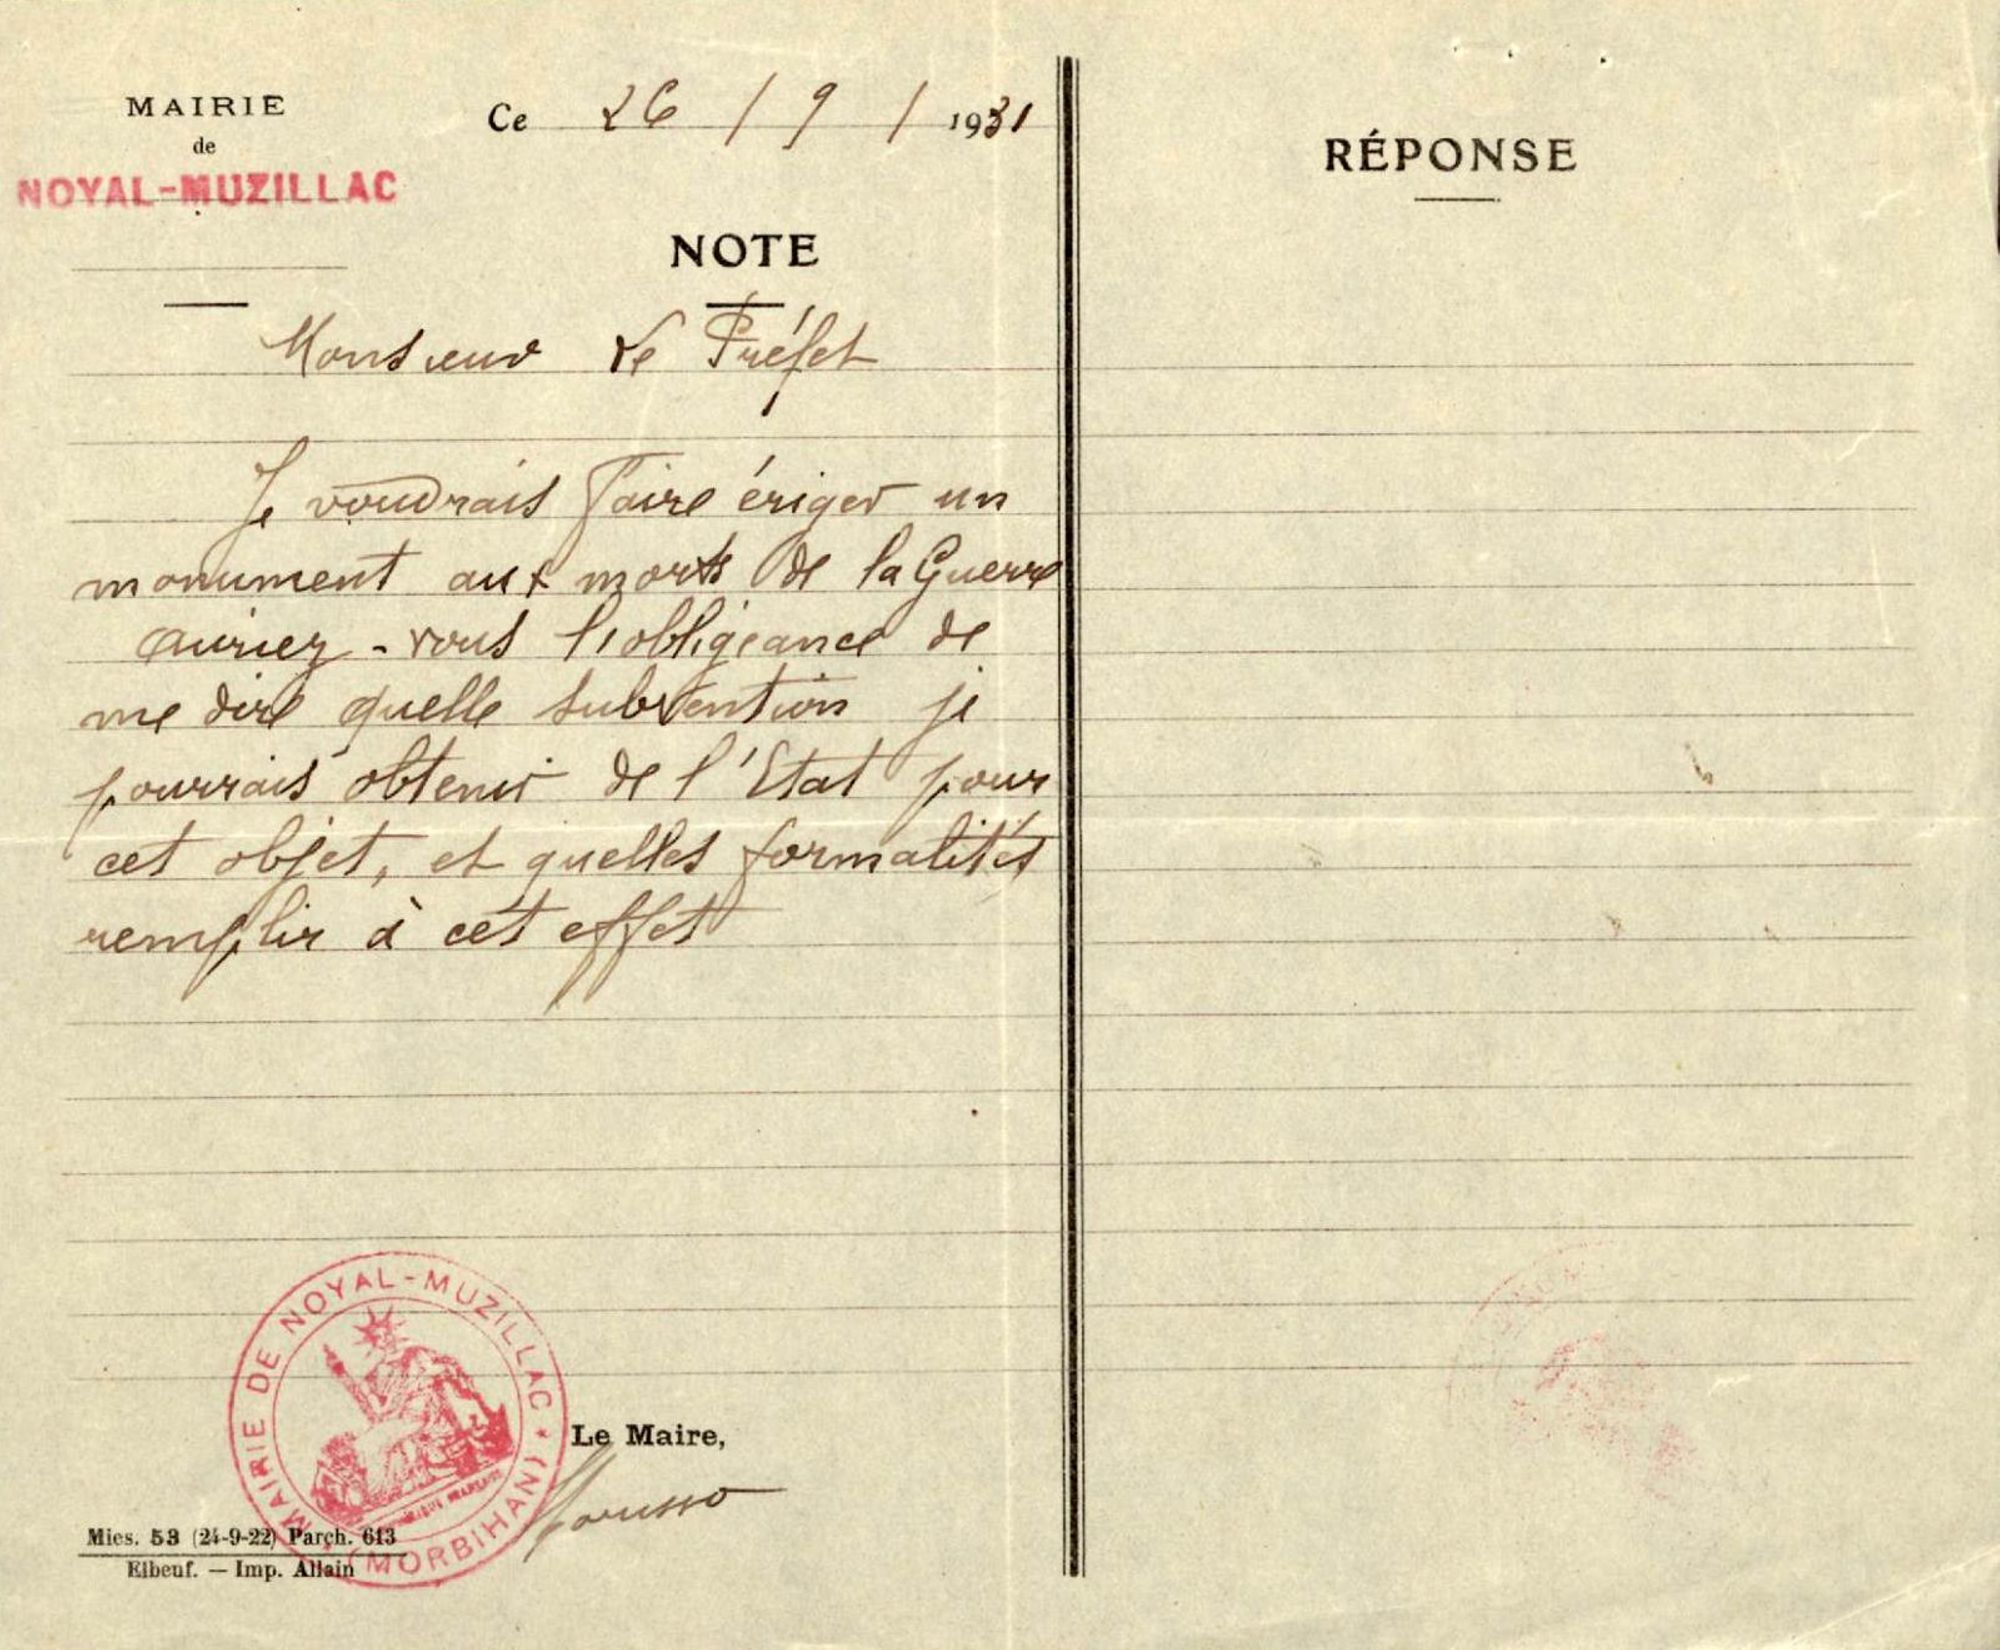 MAIRIE
de
NOYAL-MUZILLAC
Ce 26 / 9 / 1931
NOTE
Monsieur Le Préfet
Je voudrais faire ériger un
monument aux morts de la Guerre
auriez-vous l'obligeance de
me dire quelle subvention je
pourrais obtenir de l'Etat pour
cet objet, et quelles formalités
remplir à cet effet
MAIRIE DE NOYAL-MUZILLAC * (MORBIHAN)
Le Maire,
Mies. 53 (24-9-22) Parch. 613
Elbeuf. — Imp. Allain
RÉPONSE